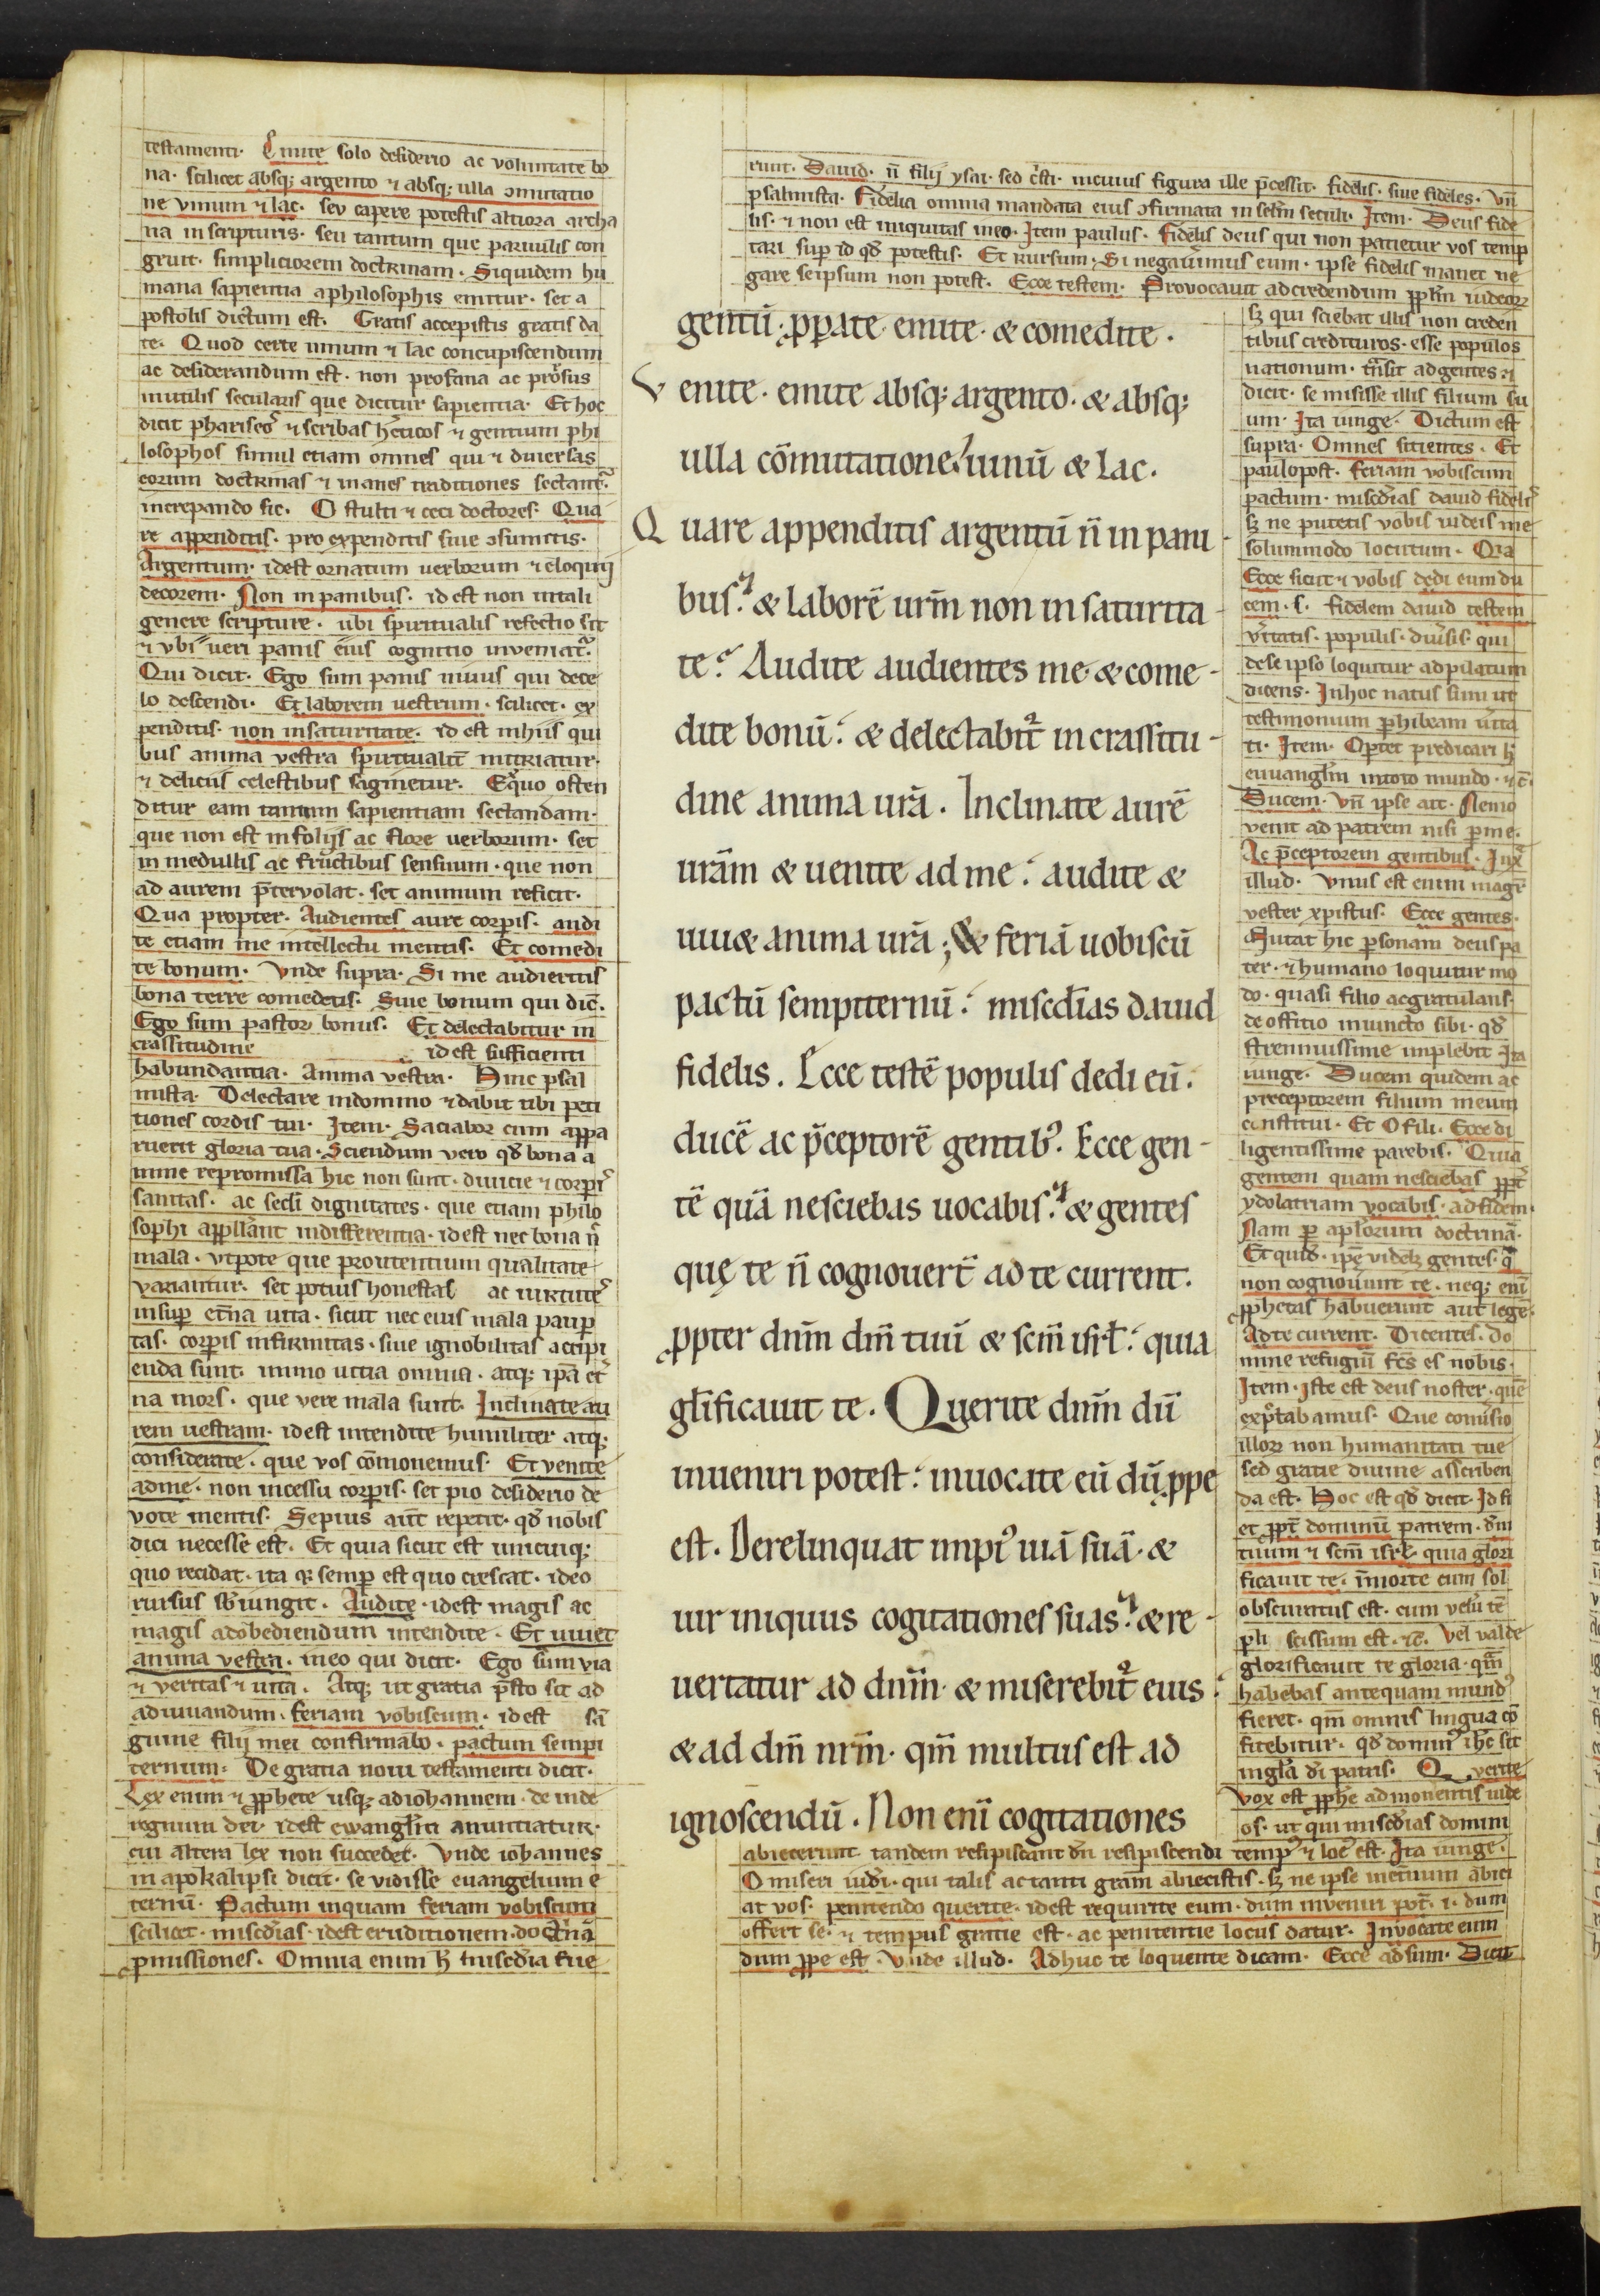 testamenti. Emite solo desiderio ac voluntate bo
na. scilicet absq; argento ⁊ absq; ulla ɔmutatio
ne vinum ⁊ lac. seu capere potestis altiora archa
na in scripturis. seu tantum que paruulis con
gruit. simpliciorem doctrinam. Siquidem hu
mana sapientia aphilosophis emitur. set a
postolis dictum est. Gratis accepistis gratis da
te. Quod certe uinum ⁊ lac concupiscendum
ac desiderandum est. non profana ac prorsus
inutilis secularis que dicitur sapientia. Et hoc
dicit phariseos ⁊ scribas hereticos ⁊ gentium phi
losophos simul etiam omnes qui ⁊ diuersas
eorum doctrinas ⁊ inanes traditiones sectant᷑.
increpando sic. O stulti ⁊ ceci doctores. Qua
re appenditis. pro expenditis siue ɔsumitis.
Argentum. idest ornatum uerborum ⁊ eloquij
decorem. Non in panibus. id est non uitali
genere scripture. ubi spiritualis refectio sit
⁊ vbi ueri panis eius cognitio inueniat᷑.
Qui dicit. Ego sum panis uiuus qui dece
lo descendi. Et laborem uestrum. scilicet. ex
penditis. non insaturitate. id est inhiis qui
bus anima vestra spiritualit̄ nutriatur.
⁊ deliciis celestibus saginetur. Equo osten
ditur eam tantum sapientiam sectandam.
que non est infolijs ac flore uerborum. set
in medullis ac fructibus sensuum. que non
ad aurem p̄teruolat. set animum reficit.
Qua propter. Audientes aure corp̱is. audi
te etiam me intellectu mentis. Et comedi
te bonum. Vnde supra. Si me audieritis
bona terre comedetis. Siue bonum qui dic̄.
Ego sum pastor bonus. Et delectabitur in
crassitudine id est sufficienti
habundantia. Anima vestra. Hinc psal
mista. Delectare indomino ⁊ dabit tibi peti
tiones cordis tui. Item. Saciabor cum appa
ruerit gloria tua. Sciendum vero qd̄ bona a
nime repromissa hic non sunt. diuicie ⁊ corp̱is
sanitas. ac secli dignitates. que etiam philo
sophi appllant indifferentia. id est nec bona n̄
mala. vtpote que proutentium qualitate
variantur. set potius honestas ac uirtutes
insup̱ et̄na uita. sicut nec eius mala paup̱
tas. corp̱is infirmitas. siue ignobilitas accipi
enda sunt. immo uitia omnia. atq; ip̄a et̓
na mors. que vere mala sunt. Inclinate au
rem uestram. id est intendite humiliter atq;
considerate. que vos cōmonemus. Et venite
adme. non incessu corp̱is. set pio desiderio de
vote mentis. Sepius aut̄ repetit. qd̄ nobis
dici necesse est. Et quia sicut est unicuiq;
quo recidat. ita q; semp̱ est quo crescat. ideo
rursus sb̄iungit. Audite. idest magis ac
magis adobediendum intendite. Et uiuet
anima vestra. ineo qui dicit. Ego sum via
⁊ veritas ⁊ uita. Atq; ut gratia p̄sto sit ad
adiuuandum. feriam vobiscum. id est sā
guine filij mei confirmabo. pactum sempi
ternum. De gratia noui testamenti dicit.
Lex enim ⁊ ꝓphete usq; adiohannem. de inde
regnum dei. idest ewangl̄m anuntiatur.
cui altera lex non succedet. Vnde iohannes
in apokalipsi dicit. se vidisse euangelium e
ternū. Pactum inquam feriam vobiscum
scilicet. miscd̄ias. idest eruditionem. doctrinā
ꝓmissiones. Omnia enim h̄ miscd̄ia fue
runt. Dauid. n̄ filij ysai. sed c̄sti. incuius figura ille p̄cessit. fidelis. siue fideles. vn̄
psalmista. Fidelia omnia mandata eius ɔfirmata in selm̄ seculi. Item. Deus fide
lis. ⁊ non est iniquitas ineo. Item paulus. Fidelis deus qui non patietur vos temp
tari sup̱ id qd̄ potestis. Et rursum. Si negauimus eum. ipse fidelis manet ne
gare seipsum non potest. Ecce testem. Prouocauit adcredendum ppl̄m iudeoꝝ
gentū. ꝓperate. emite. & comedite.
Venite. emite absq; argento. & absq;
ulla cōmutatione. uinū & lac.
Quare appenditis argentū n̄ in pani-
bus. & laborē urm̄ non in saturita-
te? Audite audientes me. & come-
dite bonū. & delectabit᷑ in crassitu-
dine anima urā. Inclinate aurē
urām & uenite ad me. audite &
uiu& anima urā; & feriā uobiscū
pactū sempiternū. miscd̄ias dauid
fidelis. Ecce testē populis dedi eū.
ducē ac p̄ceptorē gentibꝰ. Ecce gen-
tē quā nesciebas uocabis. & gentes
quę te n̄ cognouer̄t ad te current.
ꝓpter dnm̄ dm̄ tuū & scm̄ isrl̄. quia
gl̄ificauit te. Querite dnm̄ dū
inueniri potest. inuocate eū dū ꝓpe
est. Derelinquat impiꝰ uiā suā. &
uir iniquus cogitationes suas. & re-
uertatur ad dnm̄. & miserebit᷑ eius.
& ad dm̄ nrm̄. qm̄ multus est ad
ignoscendū. Non enī cogitationes
sꝫ qui sciebat illis non creden
tibus credituros. esse populos
nationum. trāsit ad gentes ⁊
dicit. se misisse illis filium su
um. Ita iunge. Dictum est
supra. Omnes sitientes. Et
paulopost. feriam vobiscum
pactum. miscd̄ias dauid fidelis
sꝫ ne putetis vobis iudeis me
solummodo locutum. Qia
Ecce sicut ⁊ vobis dedi eum du
cem. s. fidelem dauid testem
v̓itatis. populis. diu̓sis. qui
deseipso loquitur adpilatum
dicens. Inhoc natus sum ut
testimonium p̱hibeam u̓ita
ti. Item. Op̱tet predicari h̄
euuangl̄m intoto mundo. ⁊c̄.
Ducem. vn̄ ipse ait. Nemo
venit ad patrem nisi p̱me.
Ac p̄ceptorem gentibus. Iux̄
illud. Vnus est enim magr̄
vester xpistus. Ecce gentes.
Mutat hic p̱sonam deus pa
ter. ⁊ humano loquitur mo
do. quasi filio acgratulans.
de offitio iniuncto sibi. qd̄
strennuissime implebit Ita
iunge. Ducem quidem ac
preceptorem filium meum
constitui. Et O fili. Ecce di
ligentissime parebis. Quia
gentem quam nesciebas ꝓpt̓
ydolatriam vocabis. adfidem.
Nam p̱ aplorum doctrinā.
Et quid. ipē videlꝫ gentes. q̄
non cognouunt te. neq; enī
ꝓphetas habuerunt aut legē.
Adte current. Dicentes. Do
mine refugiū fc̄s es nobis.
Item. Iste est deus noster. quē
exp̄tabamus. Que conu̓sio
illoꝝ non humanitati tue
sed gratie diuine asscriben
da est. Hoc est qd̄ dicit. Id fi
et ꝓpt̄ dominū patrem. dm̄
tuum ⁊ scm̄ isrl̄. quia glori
ficauit te. īmorte cum sol
obscuratus est. cum velū tē
pli scissum est. ⁊c̄. Vel valde
glorificauit te gloria. qm̄
habebas antequam mundꝰ
fieret. qm̄ omnis lingua cō
fitebitur. qd̄ dominꝰ ihc̄ sit
ingl̄a dī patris. Querite
Vox est ꝓphe admonentis iude
os. ut qui miscd̄ias domini
abiecerunt tandem resipiscant dū resipiscendi tempꝰ ⁊ locꝰ est. Ita iunge.
O miseri iudei. qui talis ac tanti grām abiecistis. sꝫ ne ipse inet̄nuum abici
at vos. penitendo querite. idest requirite eum. dum inueniri pot̄. i. dum
offert se. ⁊ tempus gratie est. ac penitentie locus datur. Inuocate eum
dum ꝓpe est. Vnde illud. Adhuc te loquente dicam. Ecce adsum. Dicit